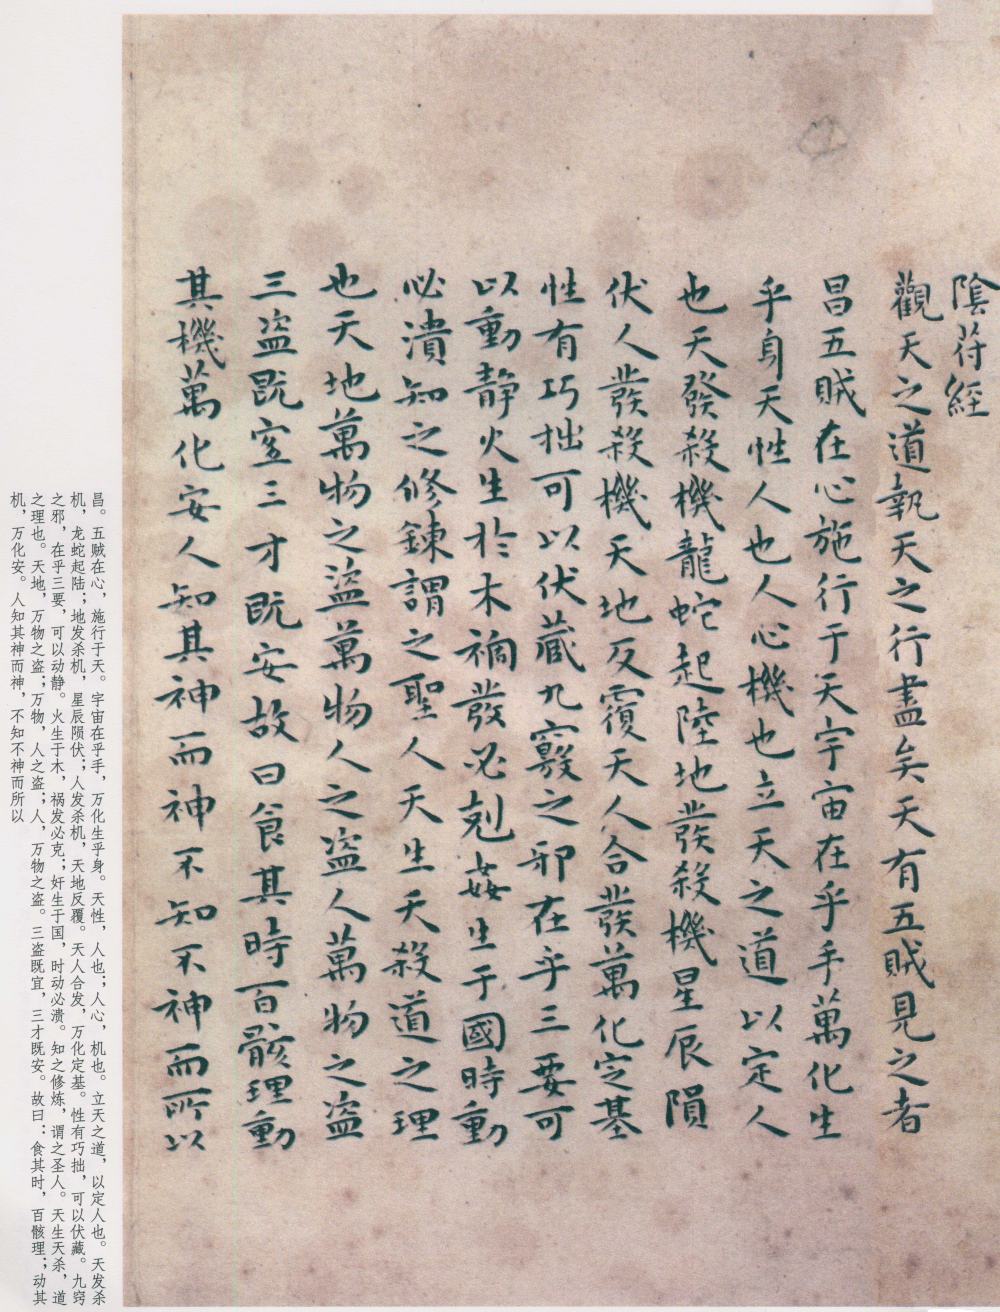 陰符經
觀天之道執天之行盡矣天有五賊見之者
昌五賊在心施行于天宇宙在乎手萬化生
乎身天性人也人心機也立天之道以定人
也天發殺機龍蛇起陸地發殺機星辰隕
伏人發殺機天地反覆天人合發萬化定基
性有巧拙可以伏藏九竅之邪在乎三要可
以動靜火生於木禍發必剋姦生于國時動
必潰知之修鍊謂之聖人天生天殺道之理
也天地萬物之盜萬物人之盜人萬物之盜
三盜既宜三才既安故曰食其時百骸理動
其機萬化安人知其神而神不知不神而所以
昌。五贼在心，施行于天。宇宙在乎手，万化生乎身。天性，人也；人心，机也。立天之道，以定人也。天发杀
机，龙蛇起陆；地发杀机，星辰陨伏；人发杀机，天地反覆。天人合发，万化定基。性有巧拙，可以伏藏。九窍
之邪，在乎三要，可以动静。火生于木，祸发必克；奸生于国，时动必溃。知之修炼，谓之圣人。天生天杀，道
之理也。天地，万物之盗；万物，人之盗；人，万物之盗。三盗既宜，三才既安。故曰：食其时，百骸理；动其
机，万化安。人知其神而神，不知不神而所以